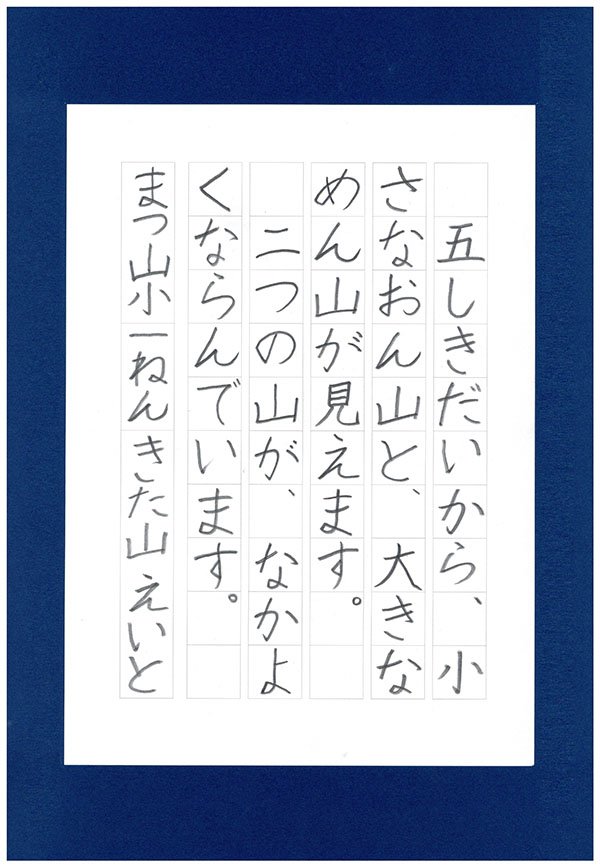 五しきだいから、小
さなおん山と、大きな
めん山が見えます。
　二つの山が、なかよ
くならんでいます。
まつ山小一ねんきた山えいと